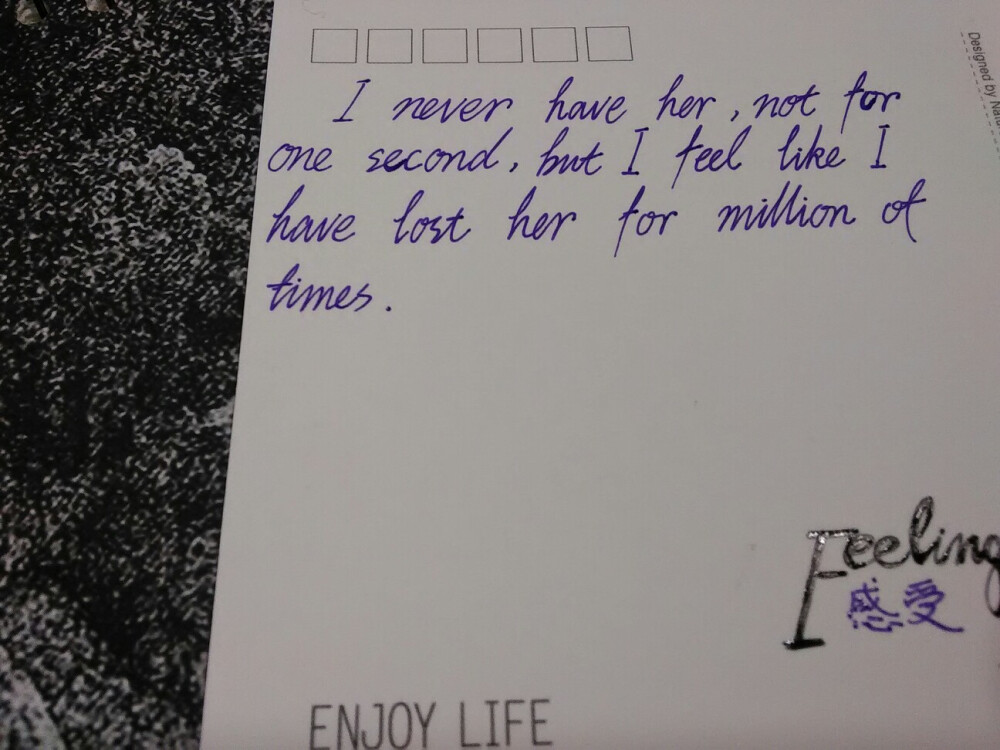 Designed by
I never have her, not for
one second, but I feel like I
have lost her for million of
times.
Feeling
感受
ENJOY LIFE